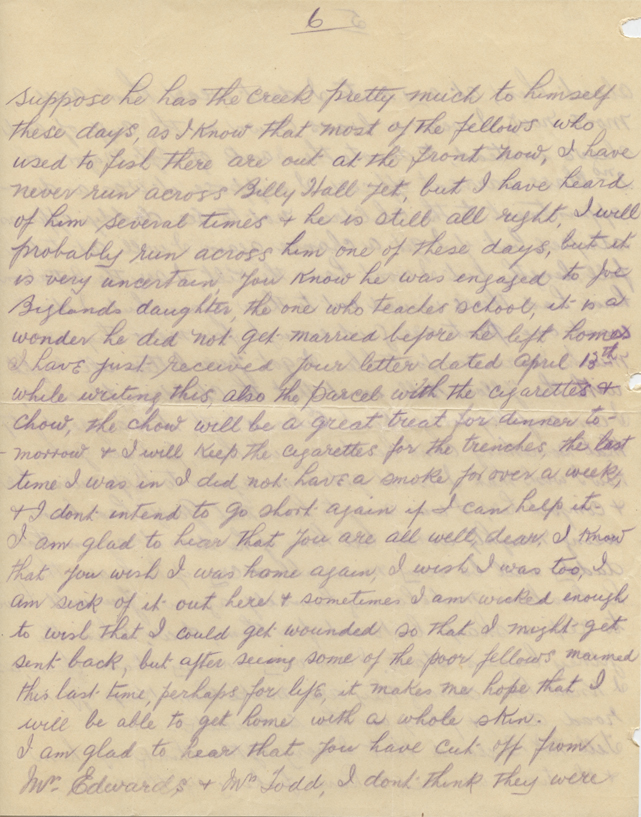 6
suppose he has the creek pretty much to himself
these days, as I know that most of the fellows who
used to fish there are out at the front now, I have
never run across Billy Hall yet, but I have heard
of him several times & he is still all right, I will
probably run across him one of these days, but it
is very uncertain you know he was engaged to Joe
Biglands daughter, the one who teaches school, it is a
wonder he did not get married before he left home
I have just received your letter dated april 13th
while writing this, also the parcel with the cigarettes &
chow, the chow will be a great treat for dinner to-
morrow & I will keep the cigarettes for the trenches, the last
time I was in I did not have a smoke for over a week,
& I dont intend to go short again if I can help it.
I am glad to hear that you are all well, dear, I know
that you wish I was home again, I wish I was too, I
am sick of it out here & sometimes I am wicked enough
to wish that I could get wounded so that I might get
sent back, but after seeing some of the poor fellows maimed
this last time, perhaps for life, it makes me hope that I
will be able to get home with a whole skin.
I am glad to hear that you have cut off from
Mrs Edwards & Mrs Todd, I dont think they were